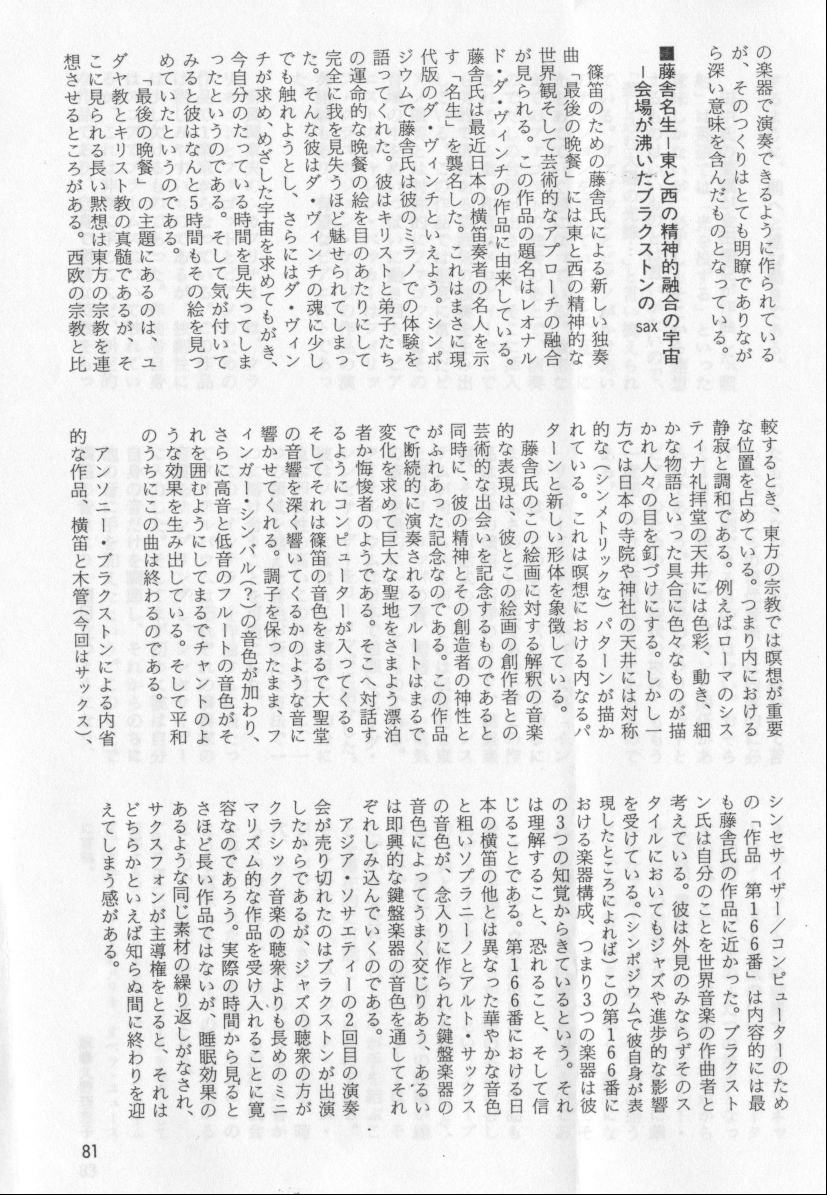 の楽器で演奏できるように作られている
が、そのつくりはとても明瞭でありなが
ら深い意味を含んだものとなっている。
■藤舎名生－東と西の精神的融合の宇宙
－会場が沸いたブラクストンの sax
篠笛のための藤舎氏による新しい独奏
曲「最後の晩餐」には東と西の精神的な
世界観そして芸術的なアプローチの融合
が見られる。この作品の題名はレオナル
ド・ダ・ヴィンチの作品に由来している。
藤舎氏は最近日本の横笛奏者の名人を示
す「名生」を襲名した。これはまさに現
代版のダ・ヴィンチといえよう。シンポ
ジウムで藤舎氏は彼のミラノでの体験を
語ってくれた。彼はキリストと弟子たち
の運命的な晩餐の絵を目のあたりにして
完全に我を見失うほど魅せられてしまっ
た。そんな彼はダ・ヴィンチの魂に少し
でも触れようとし、さらにはダ・ヴィン
チが求め、めざした宇宙を求めてもがき、
今自分のたっている時間を見失ってしま
ったというのである。そして気が付いて
みると彼はなんと5時間もその絵を見つ
めていたというのである。
「最後の晩餐」の主題にあるのは、ユ
ダヤ教とキリスト教の真髄であるが、そ
こに見られる長い黙想は東方の宗教を連
想させるところがある。西欧の宗教と比
較するとき、東方の宗教では瞑想が重要
な位置を占めている。つまり内における
静寂と調和である。例えばローマのシス
ティナ礼拝堂の天井には色彩、動き、細
かな物語といった具合に色々なものが描
かれ人々の目を釘づけにする。しかし一
方では日本の寺院や神社の天井には対称
的な（シンメトリックな）パターンが描か
れている。これは瞑想における内なるパ
ターンと新しい形体を象徴している。
藤舎氏のこの絵画に対する解釈の音楽
的な表現は、彼とこの絵画の創作者との
芸術的な出会いを記念するものであると
同時に、彼の精神とその創造者の神性と
がふれあった記念なのである。この作品
で断続的に演奏されるフルートはまるで
変化を求めて巨大な聖地をさまよう漂泊
者か悔悛者のようである。そこへ対話す
るようにコンピューターが入ってくる。
そしてそれは篠笛の音色をまるで大聖堂
の音響を深く響いてくるかのような音に
響かせてくれる。調子を保ったまま、フ
ィンガー・シンバル（？）の音色が加わり、
さらに高音と低音のフルートの音色がそ
れを囲むようにしてまるでチャントのよ
うな効果を生み出している。そして平和
のうちにこの曲は終わるのである。
アンソニー・ブラクストンによる内省
的な作品、横笛と木管（今回はサックス）、
シンセサイザー／コンピューターのため
の「作品　第166番」は内容的には最
も藤舎氏の作品に近かった。ブラクスト
ン氏は自分のことを世界音楽の作曲者と
考えている。彼は外見のみならずそのス
タイルにおいてもジャズや進歩的な影響
を受けている。（シンポジウムで彼自身が表
現したところによれば）この第166番に
おける楽器構成、つまり3つの楽器は彼
の3つの知覚からきているという。それ
は理解すること、恐れること、そして信
じることである。第166番における日
本の横笛の他とは異なった華やかな音色
と粗いソプラニーノとアルト・サックス
の音色が、念入りに作られた鍵盤楽器の
音色によってうまく交じりあう、あるい
は即興的な鍵盤楽器の音色を通してそれ
ぞれしみ込んでいくのである。
アジア・ソサエティーの2回目の演奏
会が売り切れたのはブラクストンが出演
したからであるが、ジャズの聴衆の方が
クラシック音楽の聴衆よりも長めのミニ
マリズム的な作品を受け入れることに寛
容なのであろう。実際の時間から見ると
さほど長い作品ではないが、睡眠効果の
あるような同じ素材の繰り返しがなされ、
サクスフォンが主導権をとると、それは
どちらかといえば知らぬ間に終わりを迎
えてしまう感がある。
81